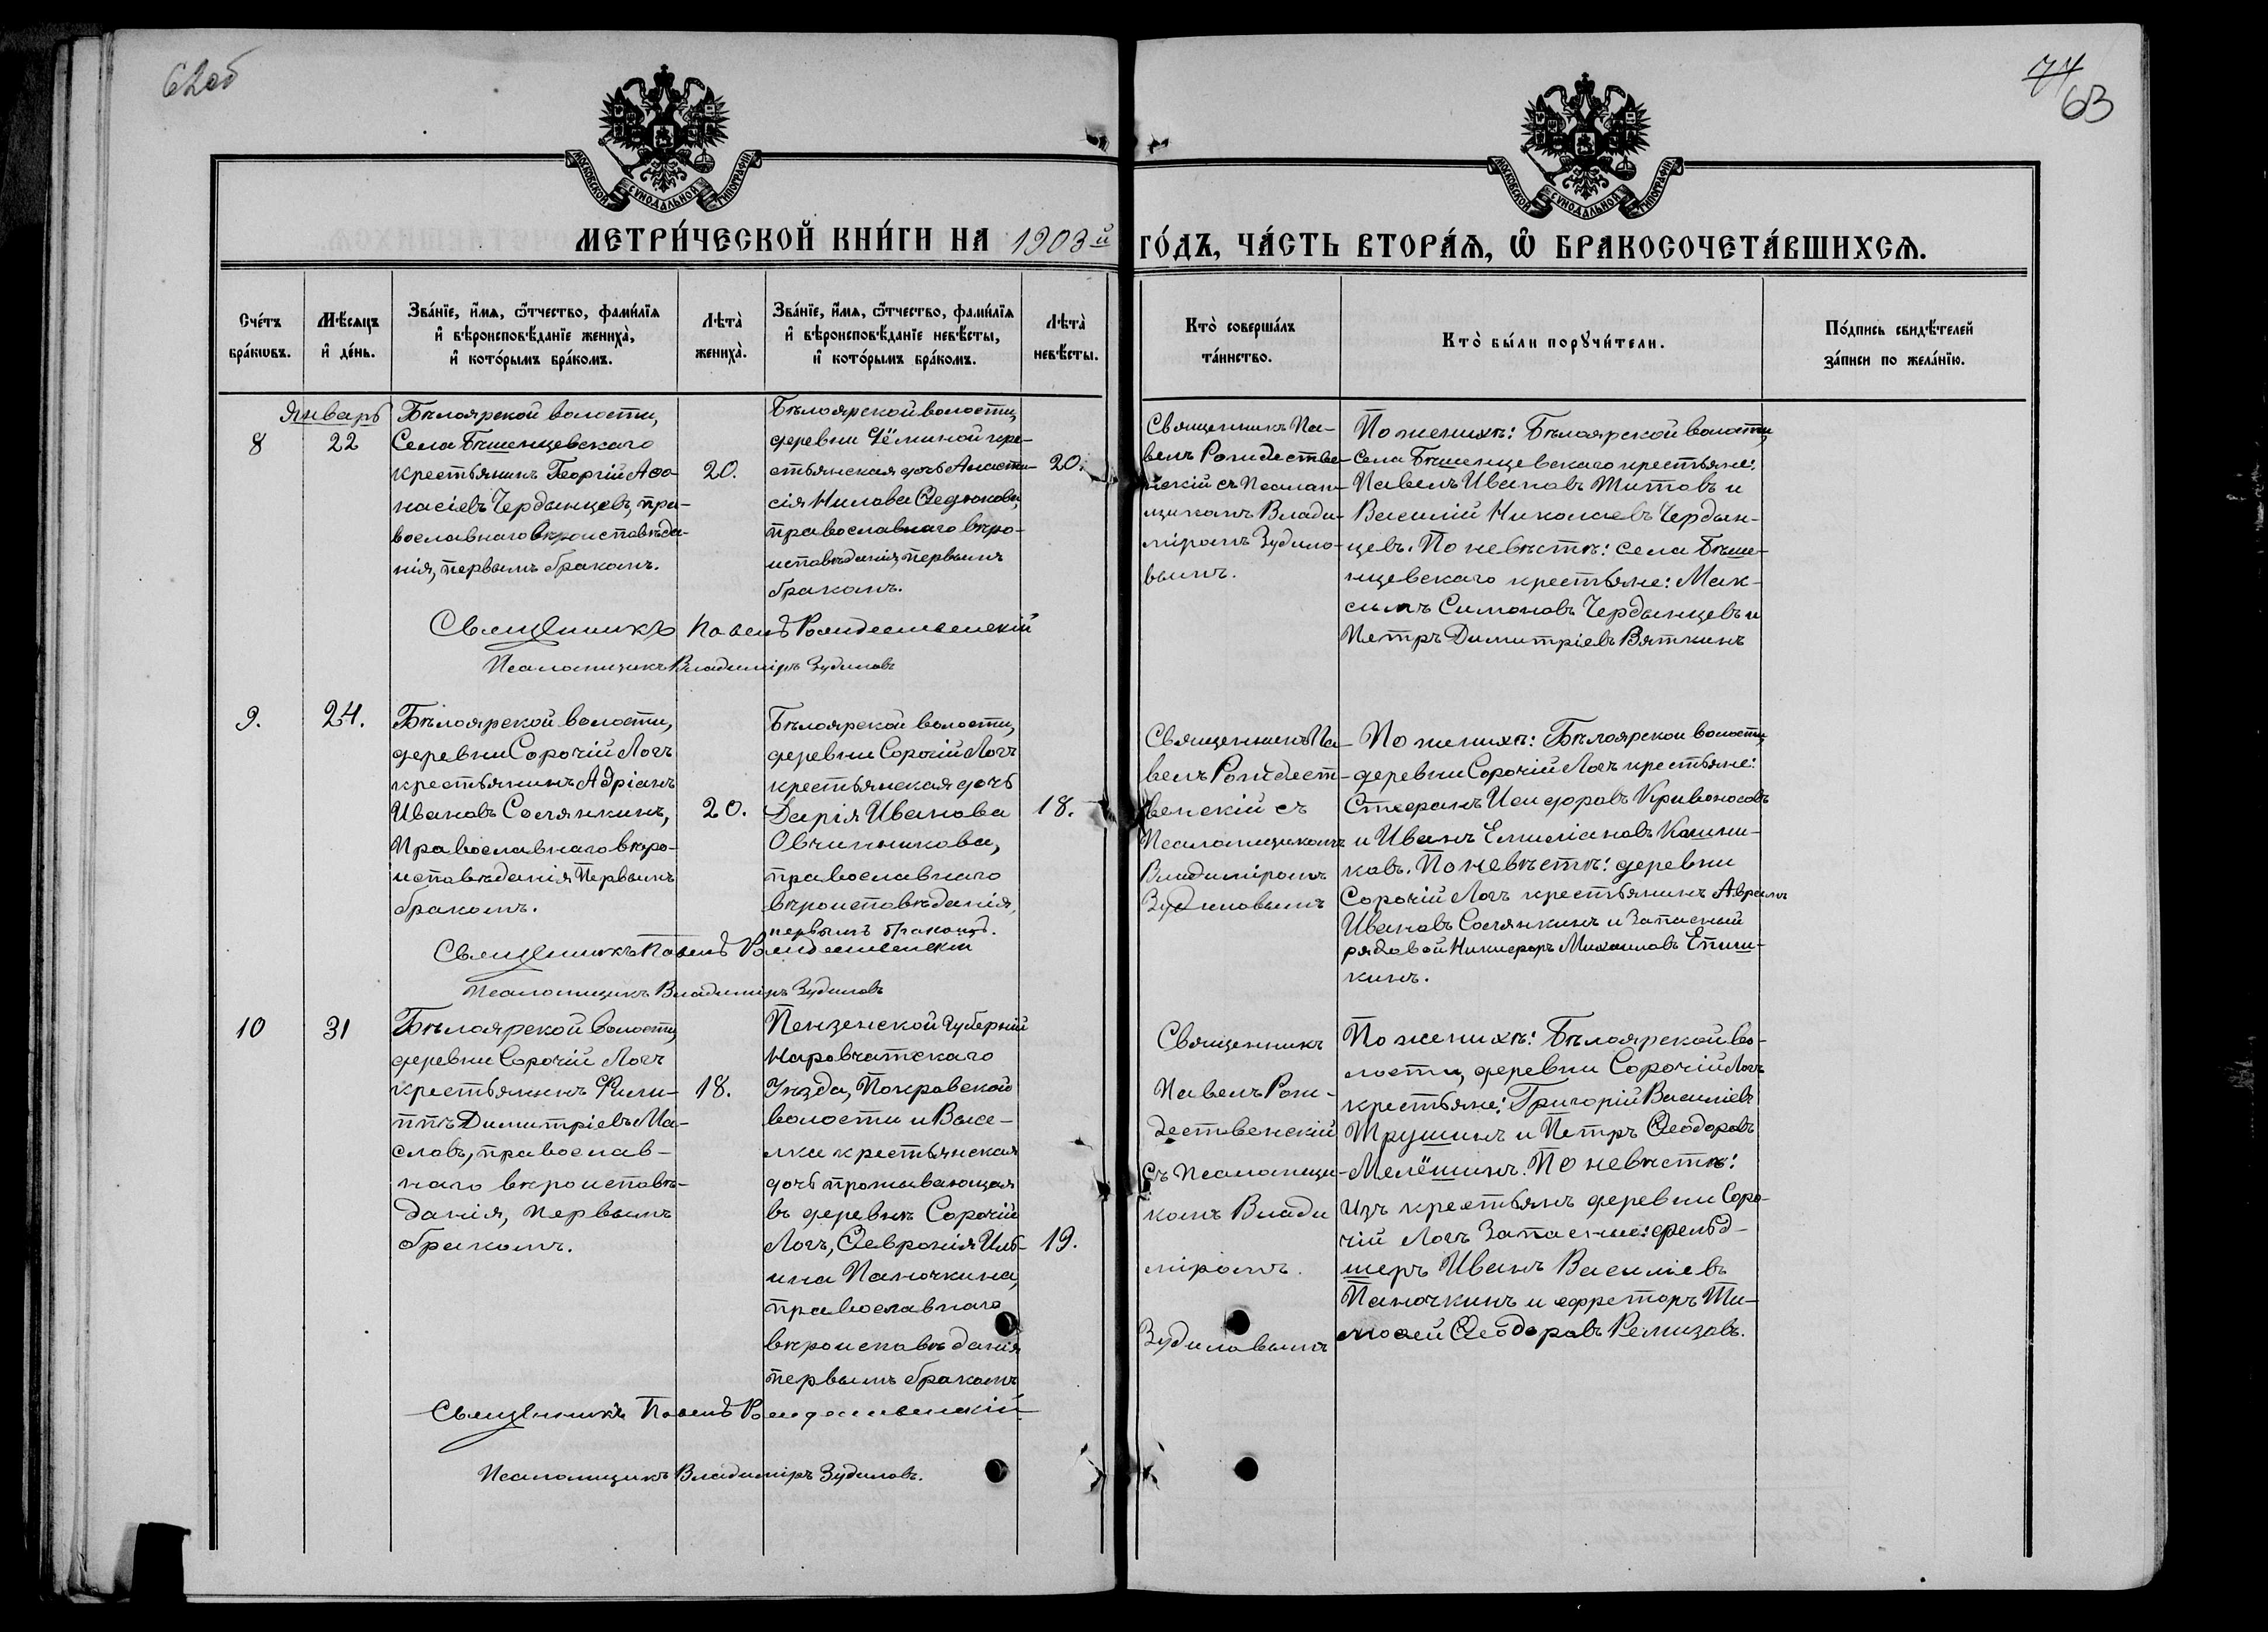 62об
74
63
МОСКОВСКОЙ СѴНОДАЛЬНОЙ ТИПОГРАФІИ
МОСКОВСКОЙ СѴНОДАЛЬНОЙ ТИПОГРАФІИ
МЕТРИ́ЧЕСКОЙ КНИ́ГИ НА 1903 й
ГО́ДЪ, ЧА́СТЬ ВТОРА́Ѧ, Ѽ БРАКОСОЧЕТА́ВШИХСѦ.
Сче́тъ
бра́кѡвъ.
Мѣ́сяцъ
и҆ де́нь.
Зва́нїе, и҆́мѧ, ѻ҆́тчество, фами́лїѧ
и҆ вѣроисповѣ́данїе жениха̀,
и҆ кото́рымъ бра́комъ.
Лѣта̀
жениха̀.
Зва́нїе, и҆́мѧ, ѻ҆́тчество, фами́лїѧ
и҆ вѣроисповѣ́данїе невѣ́сты,
и҆ кото́рымъ бра́комъ.
Лѣта̀
невѣ́сты.
Кто̀ соверша́лъ
та́инство.
Кто̀ бы́ли порꙋчи́тели.
По́дпись свидѣ́телей
за́писи по жела́нїю.
Январь
8
22
Бѣлоярской волости,
Села Бѣшенцевскаго
крестьянинъ Георгій Аѳо-
насіевъ Чердынцевъ, пра-
вославнаго вѣроисповѣда-
нія, первымъ бракомъ.
20.
Бѣлоярской волости,
деревни Дёминой кре-
стьянская дочь Анаста-
сія Нилова Ѳедюкова,
православнаго вѣро-
исповѣданія, первымъ
бракомъ.
20.
Священникъ Па-
велъ Рождестве-
нскій съ Псалом-
щикомъ Влади-
міромъ Зудило-
вымъ.
По женихѣ: Бѣлоярской волости,
села Бѣшенцевскаго крестьяне:
Павелъ Ивановъ Титовъ и
Василій Николаевъ Чердын-
цевъ. По невѣстѣ: села Бѣше-
нцевскаго крестьяне: Мак-
симъ Симоновъ Чердынцевъ и
Петръ Димитріевъ Вяткинъ
Священникъ Павелъ Рождественскій
Псаломщикъ Владиміръ Зудиловъ
9.
24.
Бѣлоярской волости,
деревни Сорочій Логъ
крестьянинъ Адріанъ
Ивановъ Солянкинъ,
Православнаго вѣро-
исповѣданія Первымъ
бракомъ.
20.
Бѣлоярской волости,
деревни Сорочій Логъ
крестьянская дочь
Дарія Иванова
Овчинникова,
православнаго
вѣроисповѣданія,
первымъ бракомъ.
18.
Священникъ Па-
велъ Рождест-
венскій съ
Псаломщикомъ
Владиміромъ
Зудиловымъ
По женихѣ: Бѣлоярской волости,
деревни Сорочій Логъ крестьяне:
Стефанъ Исидоровъ Кривоносовъ
и Иванъ Емиліановъ Кашни-
ковъ. По невѣстѣ: деревни
Сорочій Логъ крестьянинъ Аврамъ
Ивановъ Солянкинъ и Запасный
рядовой Никифоръ Михаиловъ Епиш-
кинъ.
Священникъ Павелъ Рождественскій
Псаломщикъ Владиміръ Зудиловъ
10
31
Бѣлоярской волости,
деревни Сорочій Логъ
крестьянинъ Фили-
ппъ Димитріевъ Ма-
словъ, православ-
наго вѣроисповѣ-
данія, первымъ
бракомъ.
18.
Пензенской Губерніи
Наровчатскаго
Уѣзда, Покровской
волости и Высе-
лка крестьянская
дочь проживающая
въ деревнѣ Сорочій
Логъ, Ѳевронія Иль-
ина Паночкина,
православнаго
вѣроисповѣданія
первымъ бракомъ
19.
Священникъ
Павелъ Рож-
дественскій
съ Псаломщи-
комъ Влади
міромъ
Зудиловымъ
По женихѣ: Бѣлоярской во-
лости, деревни Сорочій Логъ
крестьяне: Григорій Василіевъ
Трушинъ и Петръ Ѳеодоровъ
Мелёшинъ. По невѣстѣ:
Изъ крестьянъ деревни Соро-
чій Логъ Запасные: фельд-
шеръ Иванъ Василіевъ
Паночкинъ и ефреторъ Ти-
моѳей Ѳеодоровъ Ремизовъ.
Священникъ Павелъ Рождественскій
Псаломщикъ Владиміръ Зудиловъ.